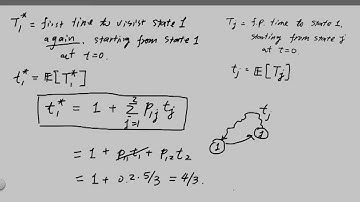 T₁* = first time to visist state 1
again, starting from state 1
at t=0.
t₁* = 𝔼[T₁*]
t₁* = 1 + Σ_{j=1}^{2} p₁ⱼ tⱼ
= 1 + p₁₁t₁ + p₁₂t₂
= 1 + 0.2 · 5/3 = 4/3.
Tⱼ = f.p. time to state 1,
starting from state j
at t=0.
tⱼ = 𝔼[Tⱼ]
tⱼ
1
1